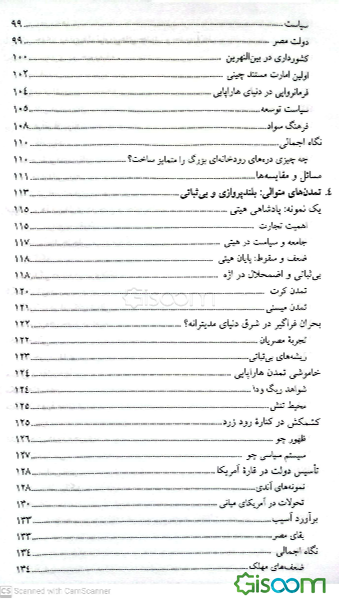 سیاست ۹۹
دولت مصر ۹۹
کشورداری در بین‌النهرین ۱۰۰
اولین امارت مستند چینی ۱۰۲
فرمانروایی در دنیای هاراپایی ۱۰۴
سیاست توسعه ۱۰۵
فرهنگ سواد ۱۰۸
نگاه اجمالی ۱۱۰
چه چیزی دره‌های رودخانه‌ای بزرگ را متمایز ساخت؟ ۱۱۰
مسائل و مقایسه‌ها ۱۱۱
۴. تمدن‌های متوالی: بلندپروازی و بی‌ثباتی ۱۱۳
یک نمونه: پادشاهی هیتی ۱۱۵
اهمیت تجارت ۱۱۵
جامعه و سیاست در هیتی ۱۱۷
ضعف و سقوط: پایان هیتی ۱۱۸
بی‌ثباتی و اضمحلال در اژه ۱۱۸
تمدن کرت ۱۲۰
تمدن میسنی ۱۲۱
بحران فراگیر در شرق دنیای مدیترانه؟ ۱۲۲
تجربهٔ مصریان ۱۲۲
ریشه‌های بی‌ثباتی ۱۲۳
خاموشی تمدن هاراپایی ۱۲۴
شواهد ریگ ودا ۱۲۴
محیط تنش ۱۲۵
کشمکش در کنارهٔ رود زرد ۱۲۵
ظهور چو ۱۲۶
سیستم سیاسی چو ۱۲۷
تأسیس دولت در قارهٔ آمریکا ۱۲۸
نمونه‌های آندی ۱۲۸
تحولات در آمریکای میانی ۱۳۰
برآورد آسیب ۱۳۳
بقای مصر ۱۳۳
نگاه اجمالی ۱۳۴
ضعف‌های مهلک ۱۳۴
Gisoom
Gisoom
CS Scanned with CamScanner